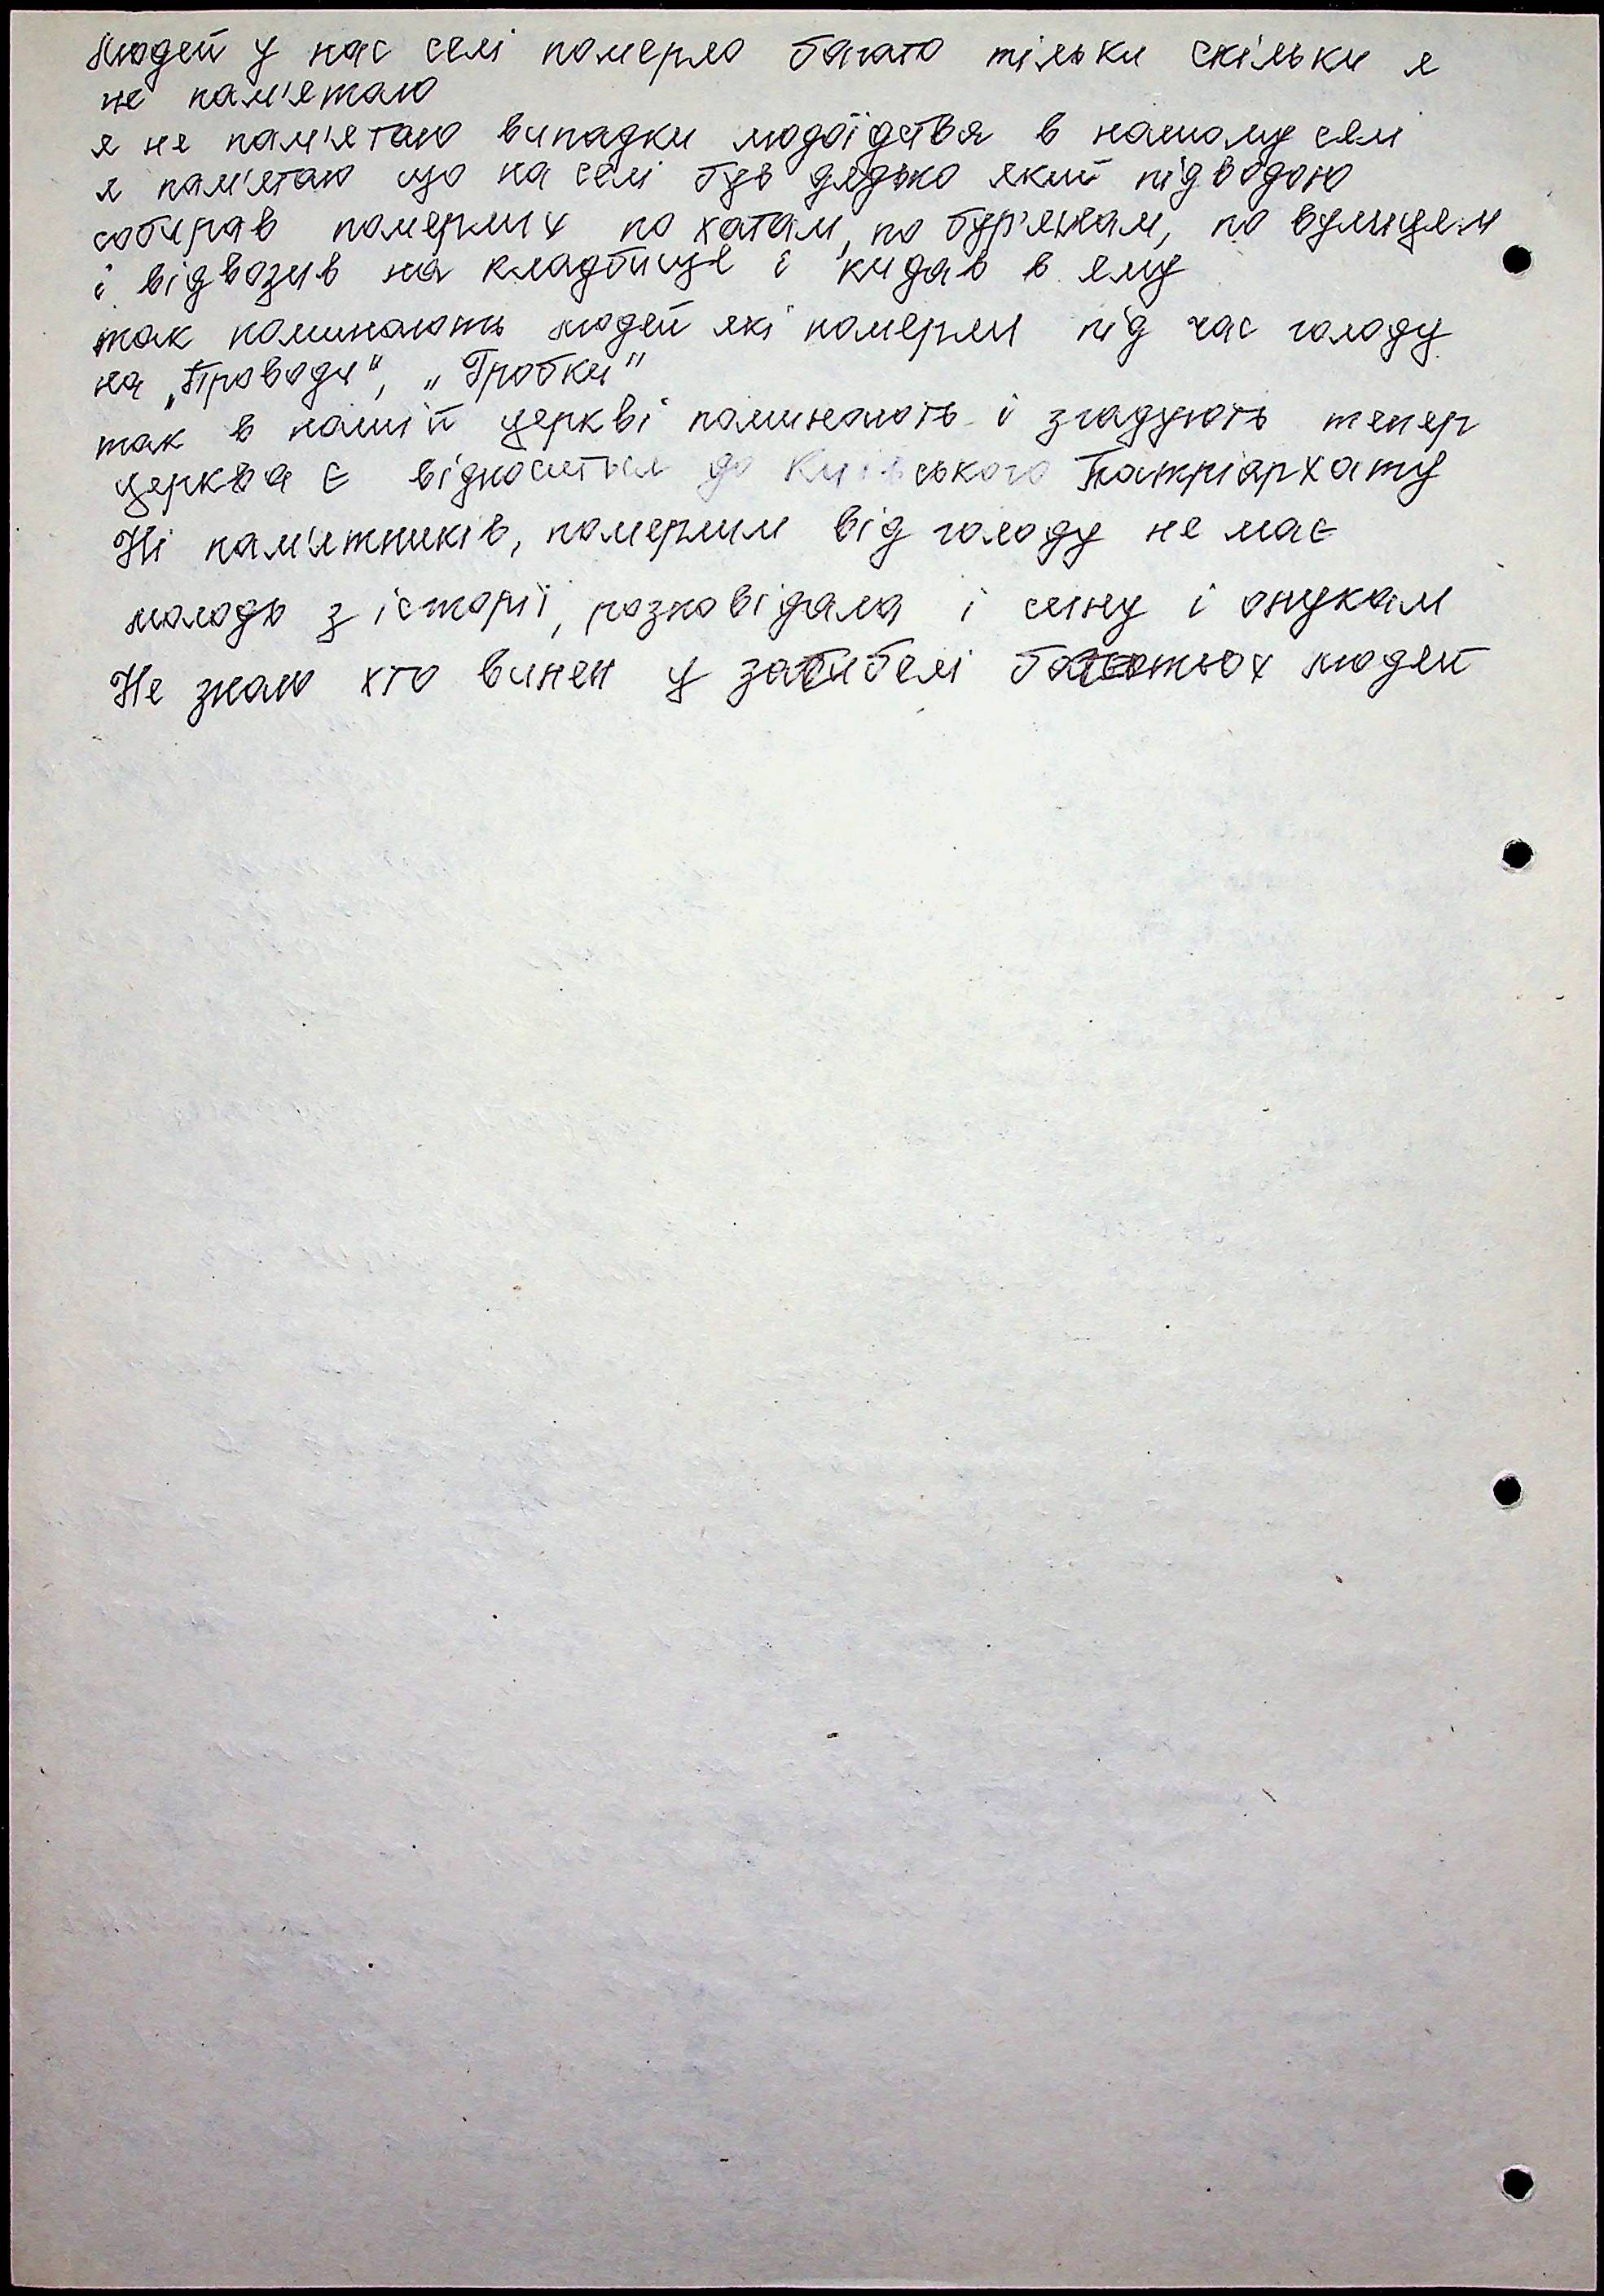 Людей у нас селі померло багато тільки скільки я
не пам'ятаю
я не пам'ятаю випадки людоїдства в нашому селі
я пам'ятаю що на селі був дядько який підводою
собирав померлих по хатам, по бур'янам, по вулицям
і відвозив на кладбище і кидав в яму
так поминають людей які померли під час голоду
на „Проводи", „Гробки"
так в нашій церкві поминають і згадують тепер
церква є відноситься до Київського Патріархату
Ні пам'ятників, померлим від голоду не має
молодь з історії, розповідала і сину і онукам
Не знаю хто винен у загибелі багатьох людей